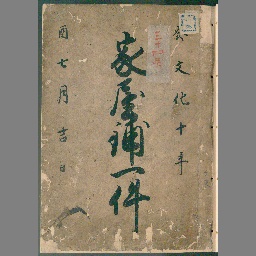 文化十年
家屋鋪一件
酉七月吉日